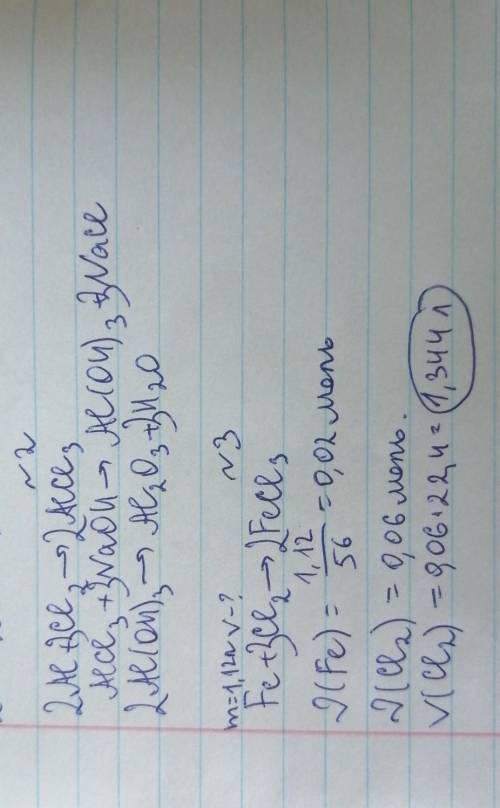 ~ 2
2Al+3Cl₂→2AlCl₃
AlCl₃+3NaOH→Al(OH)₃+3NaCl
2Al(OH)₃→Al₂O₃+3H₂O
~ 3
m=1,12г V-?
Fe+3Cl₂→2FeCl₃
ν(Fe) = 1,12/56 = 0,02 моль
ν(Cl₂) = 0,06 моль.
V(Cl₂) = 0,06·22,4 = 1,344 л